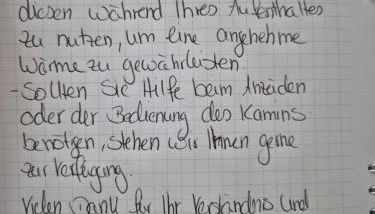 diesen während Ihres Aufenthaltes
zu nutzen, um eine angenehme
Wärme zu gewährleisten.
- Sollten Sie Hilfe beim Anzünden
oder der Bedienung des Kamins
benötigen, stehen wir Ihnen gerne
zur Verfügung.
Vielen Dank für Ihr Verständnis und